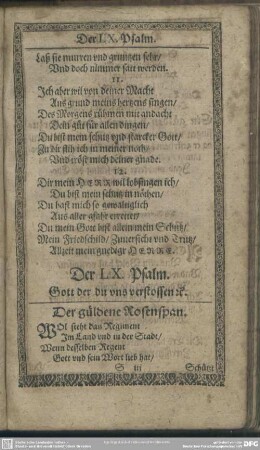 Der LX. Psalm.
Laß sie murren vnd gruntzen sehr/
Vnd doch nimmer satt werden.
11.
Ich aber wil von deiner Macht
Aus grund meins hertzens singen/
Des Morgens rühmen mit andacht
Dein güt für allen dingen/
Du bist mein schutz vnd starcker Gott/
Zu dir flih ich in meiner noth/
Vnd tröst mich deiner gnade.
12.
Dir mein HERR wil lobsingen ich/
Du bist mein schutz in nöthen/
Du hast mich so gewaltiglich
Aus aller gfahr errettet/
Du mein Gott bist allein mein Schutz/
Mein Friedschild/ Zuuersicht vnd Trutz/
Allzeit mein gnediger HERRE.
Der LX. Psalm.
Gott der du vns verstossen ꝛc.
Der güldene Rosenspan.
WOl steht das Regiment
Im Land vnd in der Stadt/
Wenn desselben Regent
Gott vnd sein Wort lieb hat/
S iii Schützt